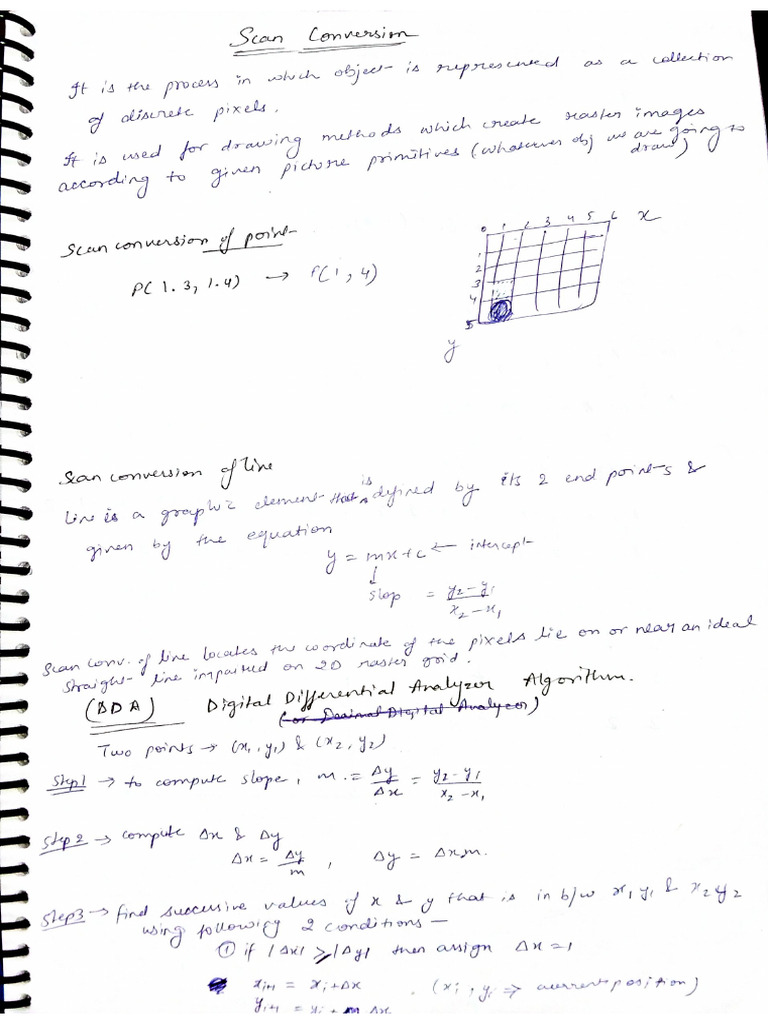 Scan Conversion
It is the process in which object is represented as a collection
of discrete pixels.
It is used for drawing methods which create raster images
according to given picture primitives (whatever obj we are going to
draw)
Scan conversion of point
P(1.3, 1.4) → P(1, 4)
0 1 2 3 4 5 6 x
1
2
3
4
5
y
Scan conversion of line
Line is a graphic element that is defined by its 2 end points &
given by the equation
y = mx+c ← intercept
↓
slop = y2-y1 / x2-x1
Scan conv. of line locates the coordinate of the pixels lie on or near an ideal
straight line imparted on 2D raster grid.
(DDA) Digital Differential Analyzer Algorithm.
(or Decimal Digital Analyzer)
Two points → (x1, y1) & (x2, y2)
Step1 → to compute slope, m = Δy/Δx = y2-y1 / x2-x1
Step2 → compute Δx & Δy
Δx = Δy/m , Δy = Δx m.
Step3 → find succusive values of x & y that is in b/w x1 y1 & x2 y2
using followig 2 conditions —
① if |Δx| ≥ |Δy| then assign Δx = 1
xi+1 = xi + Δx . (xi, yi ⇒ current position)
yi+1 = yi + m Δx